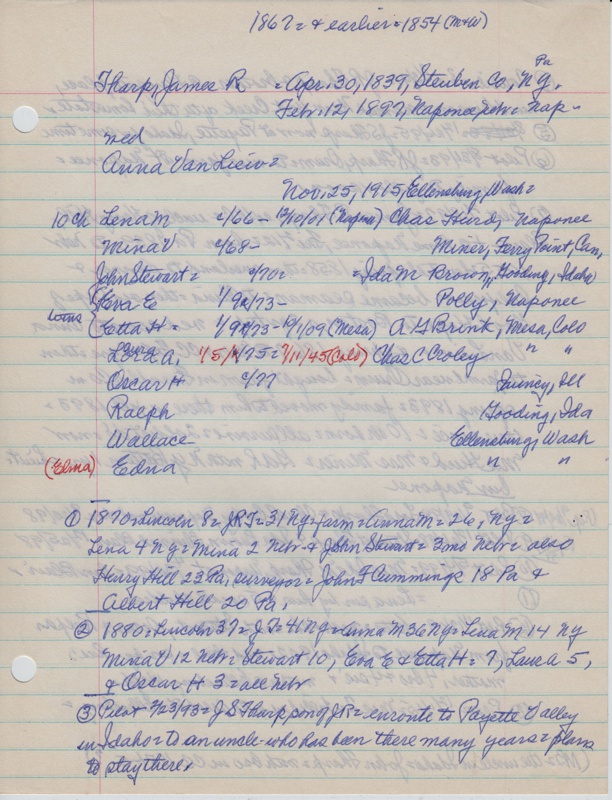 1867 = & earlier = 1854 (M&W)
Pa
Tharp, James R = Apr. 30, 1839, Steuben Co, N.Y.
Feb. 12, 1897, Naponee, Nebr = Nap-
ned
Anna Van Liew =
Nov. 25, 1915, Ellensburg, Wash =
10 Ch Lena M c/66 - 12/10/01 (Napone) Chas Hurd, Naponee
Mina V c/68 - Miner, Ferry Point, Can.
John Stewart = c/70 = = Ida M Brown, Gooding, Idaho
twins { Eva E 1/9/73 - Polly, Naponee
Etta H = 1/9/73 - 10/1/09 (Mesa) A G Brink, Mesa, Colo
Laura A, 1/5/75 = 7/11/45 (Colo) Chas C Croley " "
Oscar H c/77 Quincy, Ill
Ralph Gooding, Ida
Wallace Ellensburg, Wash
(Elma) Edna " "
① 1870, Lincoln 8 = J R T = 31 Ny = farm = Anna M = 26, Ny =
Lena 4 Ny = Mina 2 Nebr & John Stewart = 3 mo Nebr = also
Harry Hill 23 Pa, surveyor = John F Cummings 18 Pa &
Albert Hill 20 Pa.
② 1880, Lincoln 37 = J R = 41 Ny = Anna M 36 Ny = Lena M 14 Ny
Mina V 12 Nebr = Stewart 10, Eva E & Etta H = 7, Laura 5,
& Oscar H 3 = all Nebr
③ Pilot 3/23/93 = J S Tharp son of J R = enroute to Payette Valley
in Idaho = to an uncle who has been there many years = plans
to stay there.